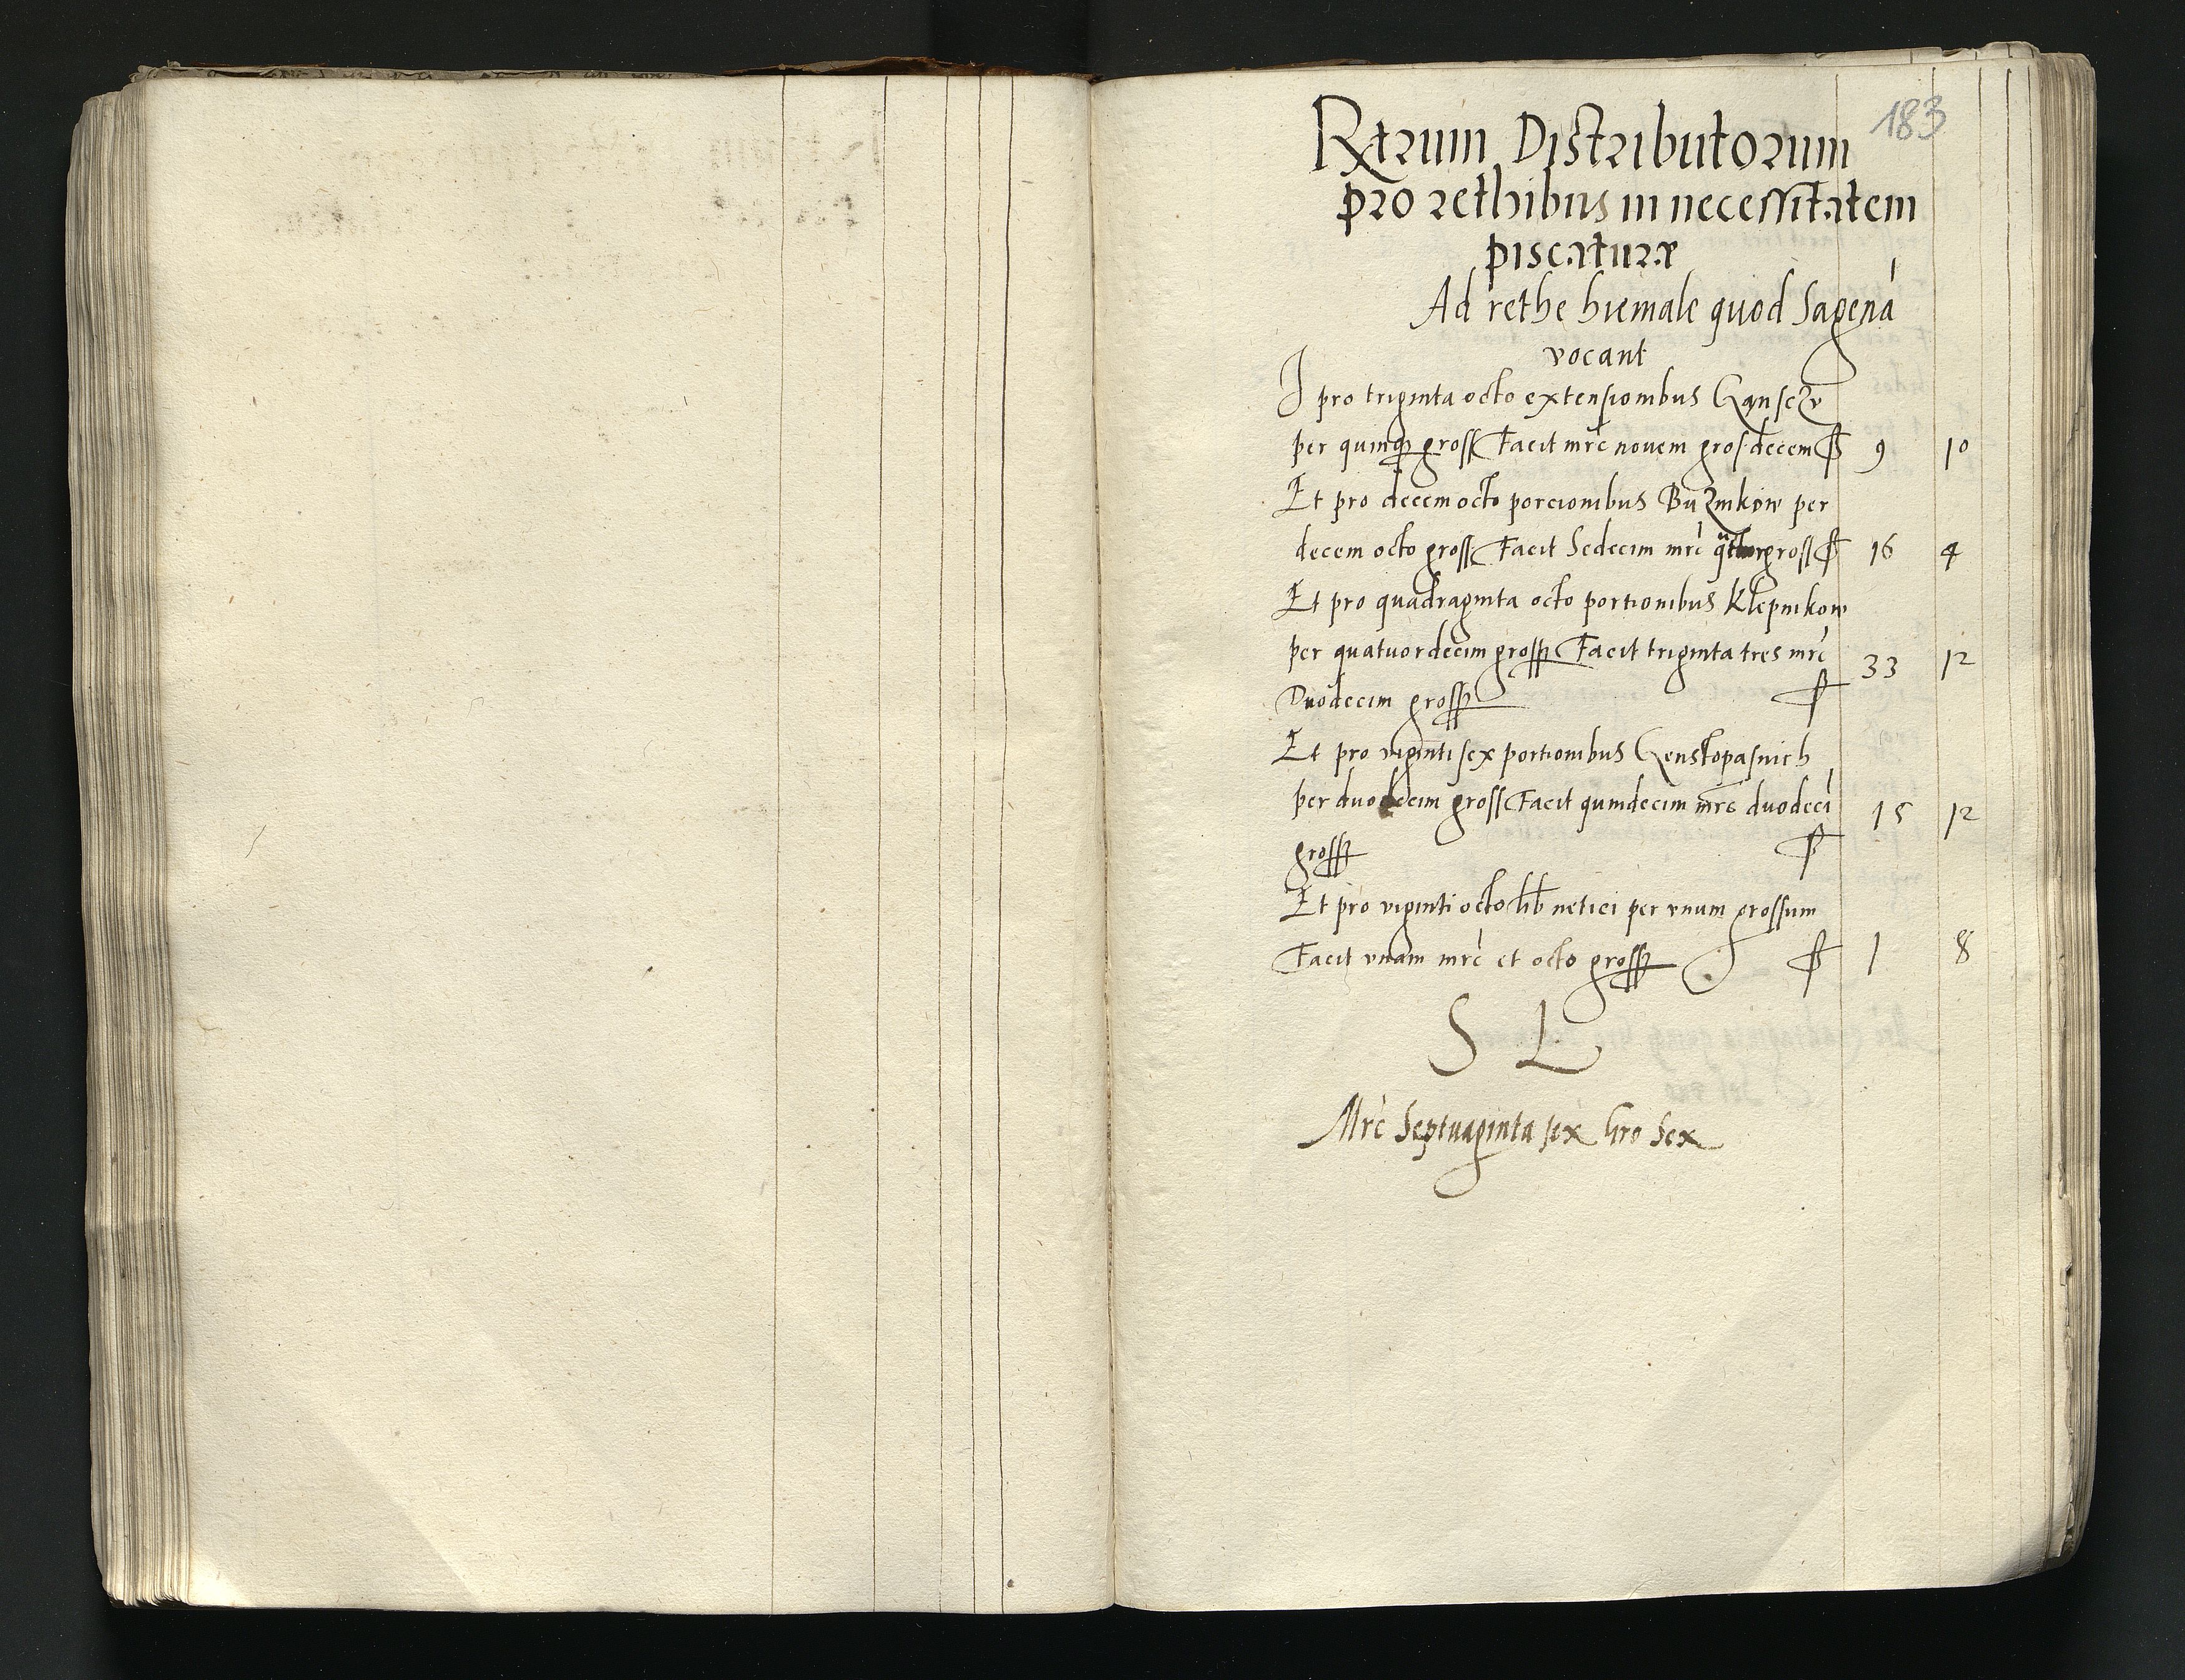 183
Rtrum Distributorum
pro rethibus in necessitatem
piscaturæ
Ad rethe hiemale quod Sagenā
vocant
I pro triginta octo extensionibus
per quinq gross Facit mrc novem gros decem 9 10
Et pro decem octo porcionibus Buznikow per
decem octo gross Facit Sedecim mrc gross 16 4
Et pro quadraginta octo portionibus Klepnikow
per quatuordecim gross Facit triginta tres mrc 33 12
Duodecim gross
Et pro viginti sex portionibus
per duodecim gross Facit quindecim mrc duodecī 15 12
gross
Et pro viginti octo lib netici per vnum grossum
Facit vnam mrc et octo gross 1 8
S L
Mrc Septuaginta sex gro Sex